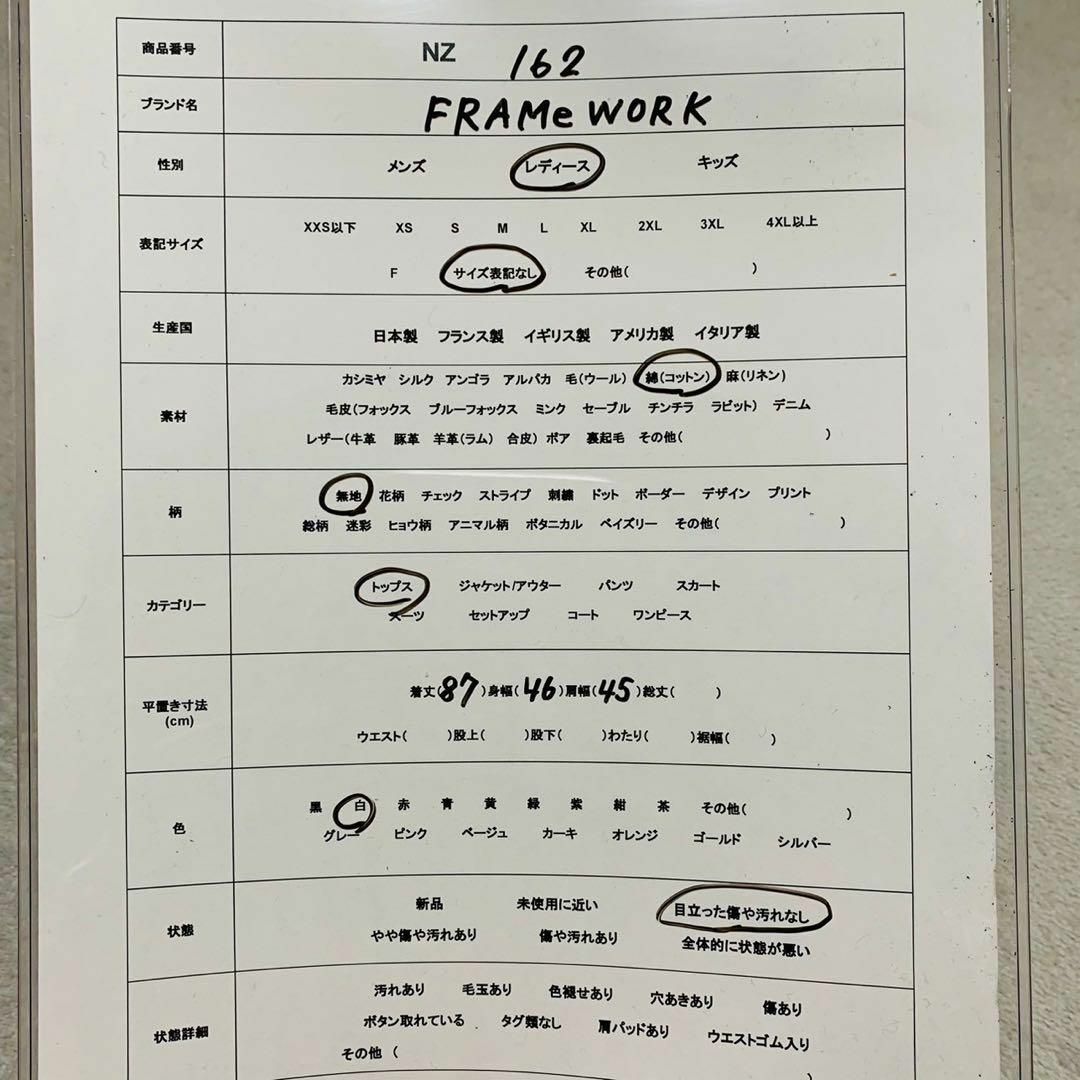 商品番号 NZ 162
ブランド名 FRAMe WORK
性別 メンズ レディース キッズ
表記サイズ XXS以下 XS S M L XL 2XL 3XL 4XL以上
F サイズ表記なし その他( )
生産国 日本製 フランス製 イギリス製 アメリカ製 イタリア製
素材 カシミヤ シルク アンゴラ アルパカ 毛(ウール) 綿(コットン) 麻(リネン)
毛皮(フォックス ブルーフォックス ミンク セーブル チンチラ ラビット) デニム
レザー(牛革 豚革 羊革(ラム) 合皮) ボア 裏起毛 その他( )
柄 無地 花柄 チェック ストライプ 刺繍 ドット ボーダー デザイン プリント
総柄 迷彩 ヒョウ柄 アニマル柄 ボタニカル ペイズリー その他( )
カテゴリー トップス ジャケット/アウター パンツ スカート
スーツ セットアップ コート ワンピース
平置き寸法 (cm) 着丈(87)身幅(46)肩幅(45)総丈( )
ウエスト( )股上( )股下( )わたり( )裾幅( )
色 黒 白 赤 青 黄 緑 紫 紺 茶 その他( )
グレー ピンク ベージュ カーキ オレンジ ゴールド シルバー
状態 新品 未使用に近い 目立った傷や汚れなし
やや傷や汚れあり 傷や汚れあり 全体的に状態が悪い
状態詳細 汚れあり 毛玉あり 色褪せあり 穴あきあり 傷あり
ボタン取れている タグ類なし 肩パッドあり ウエストゴム入り
その他 ( )